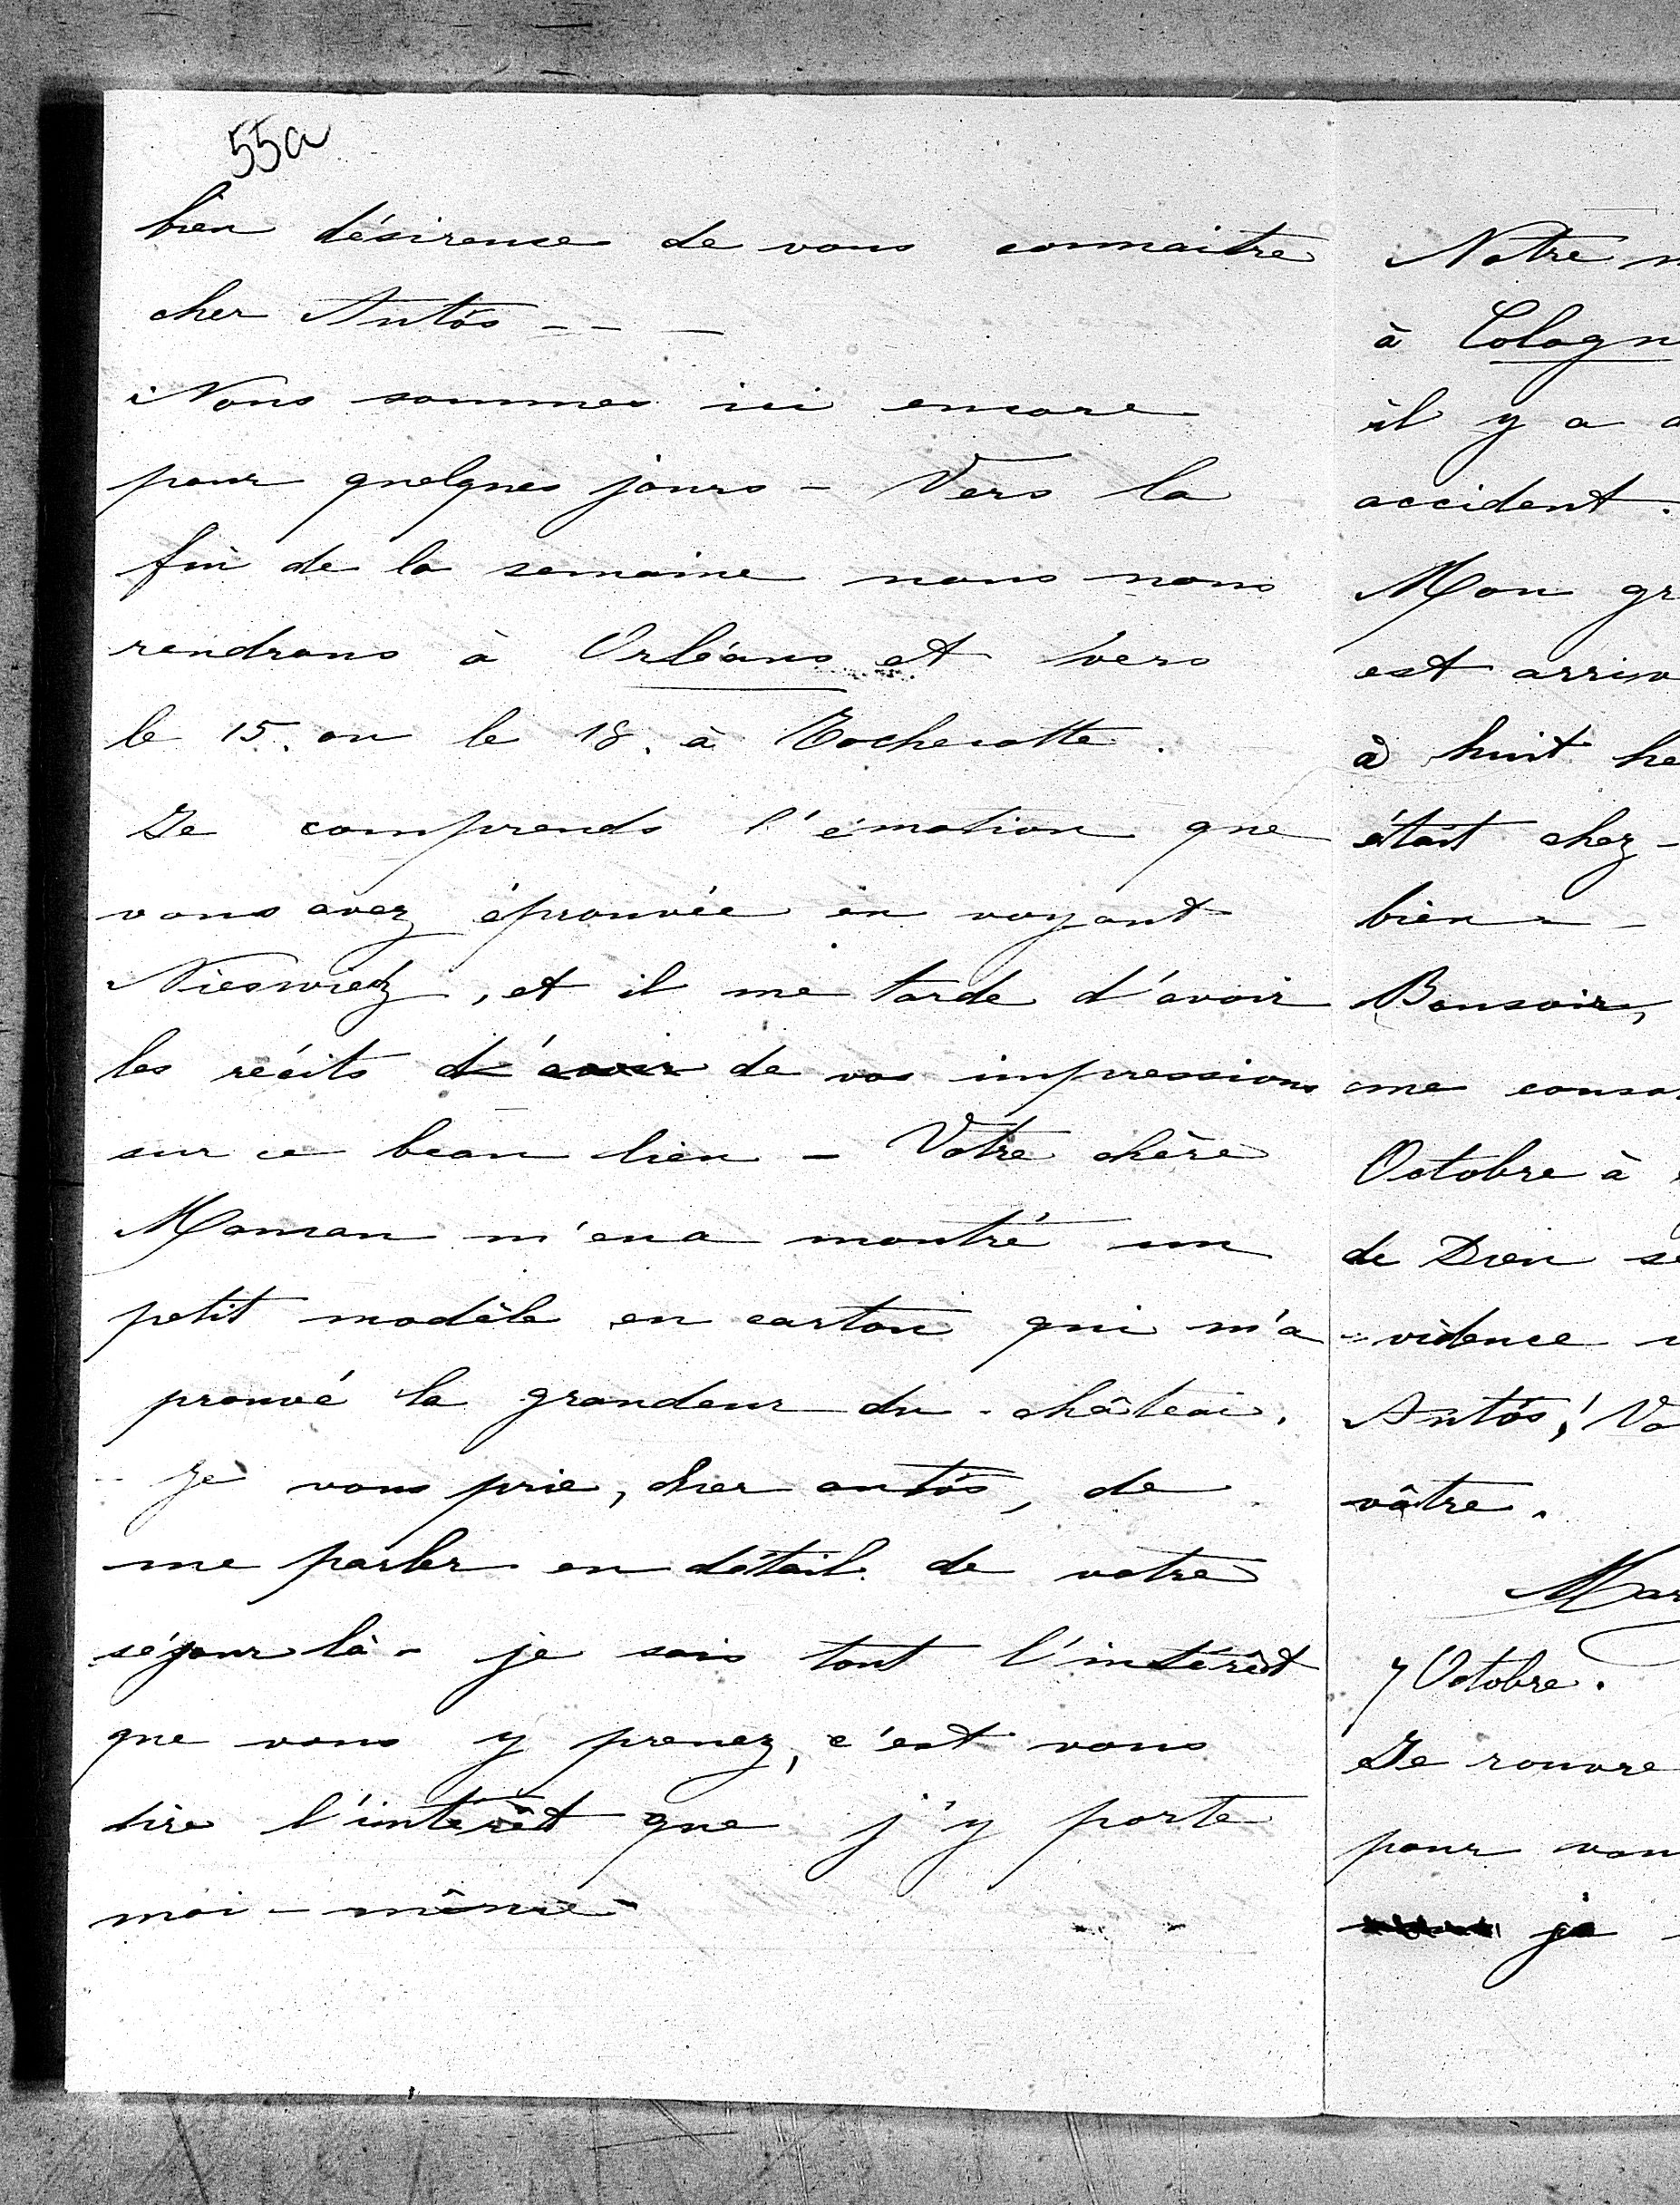 55a
bien désireuse de vous connaitre
cher Antôs - - -
Nous sommes ici encore
pour quelques jours - Vers la
fin de la semaine nous nous
rendrons à Orléans et vers
le 15. ou le 18. à Rochecotte.
Je comprends l'émotion que
vous avez éprouvée en voyant
Nieswietz, et il me tarde d'avoir
les récits d'avoir de vos impressions
sur ce beau lieu - Votre chère
Maman m'en a montré un
petit modèle en carton qui m'a
prouvé la grandeur du château.
Je vous prie, cher antôs, de
me parler en détail de votre
séjour là - je sais tout l'intérêt
que vous y prenez, c'est vous
dire l'intérêt que j'y porte
moi-même -
Notre
à Cologn
il y a
accident.
Mon gr
est arriv
à huit he
était chez -
bien -
Bonsoir,
me conso
Octobre à
de Dieu se
-vidence
Antôs! Vo
vôtre.
Mar
7 Octobre.
Je rouvre
pour vou
je